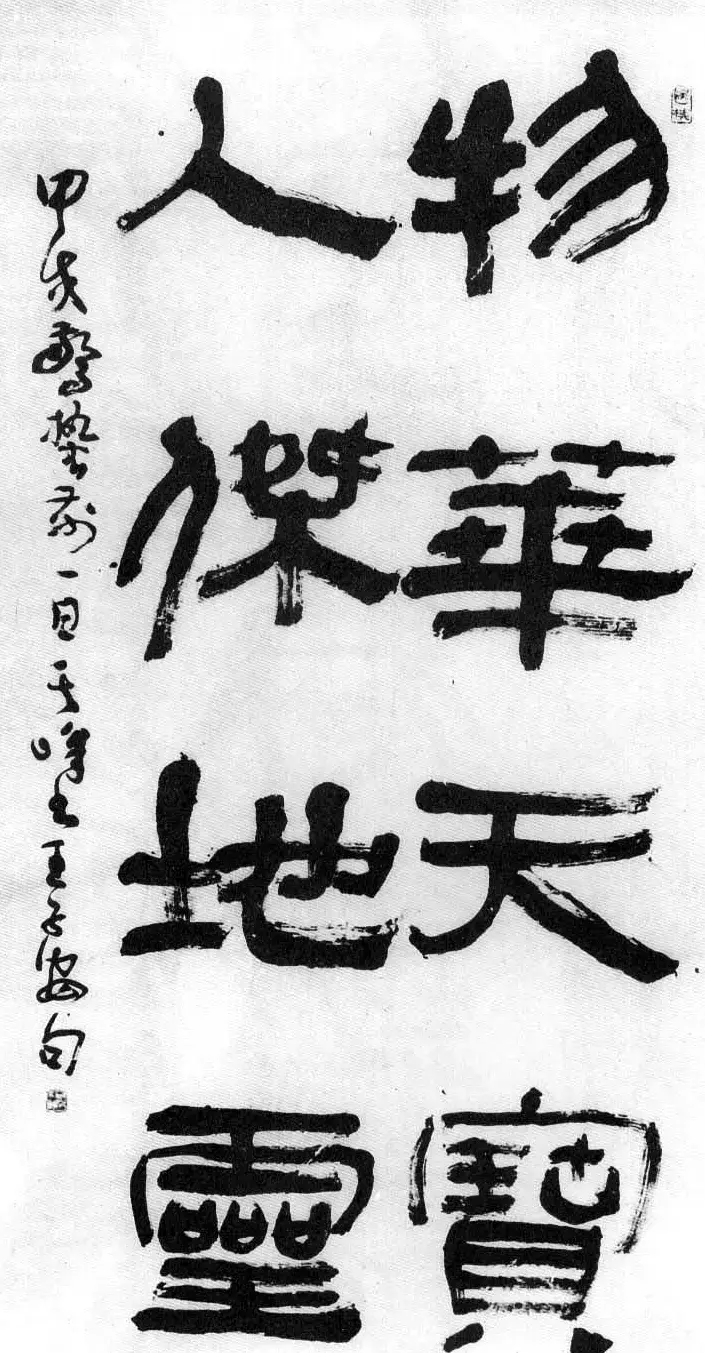 物華天寶
人傑地靈
甲戌驚蟄前一日天峰書王子安句